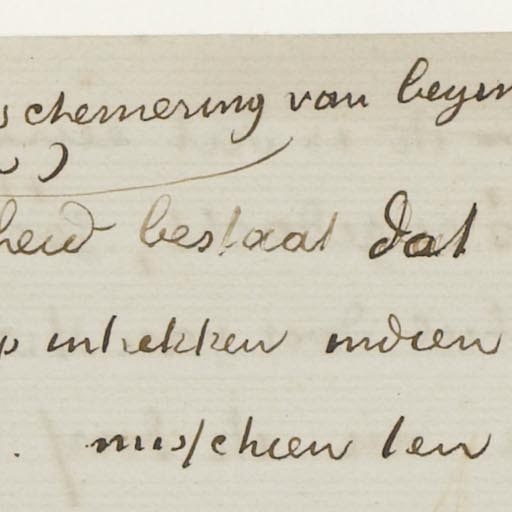 schemering van begin
heid bestaat dat
intrekken indien
misschien ten